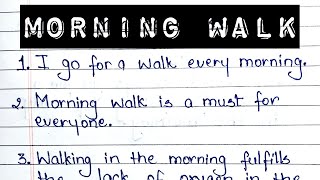 MORNING WALK
1. I go for a walk every morning.
2. Morning walk is a must for
everyone.
3. Walking in the morning fulfills
the lack of oxygen in the